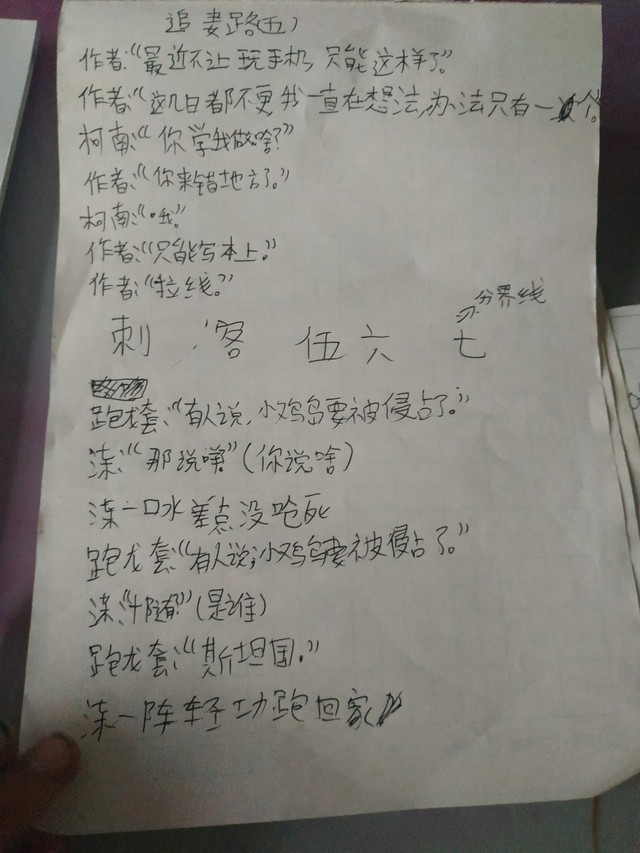 追妻路(五)
作者:“最近不让玩手机,只能这样了。”
作者:“这几日都不更我一直在想法,办法只有一个。”
柯南:“你学我做啥?”
作者:“你来错地方了。”
柯南:“哦。”
作者:“只能写本上。”
作者:“拉线。”
分界线
刺客伍六七
跑龙套:“有人说,小鸡岛要被侵占了。”
柒:“那说啥”(你说啥)
柒一口水差点没呛死
跑龙套:“有人说;小鸡岛要被侵占了。”
柒:“(是谁)
跑龙套:“斯坦国。”
柒一阵轻功跑回家